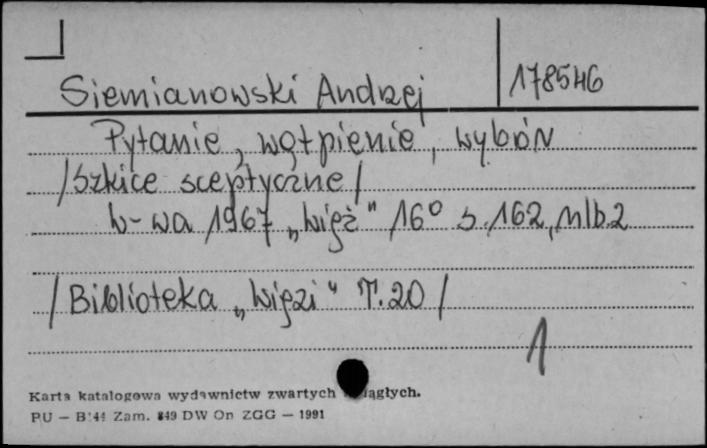 Siemianowski Andrzej 178546
Pytanie, wątpienie, wybór
/Szkice sceptyczne/
W-wa 1967 „Więź" 16° s. 162, nlb. 2
/Biblioteka „Więzi" T. 20/
1
Karta katalogowa wydawnictw zwartych i ciągłych.
PU — B/44 Zam. 849 DW Op ZGG — 1991